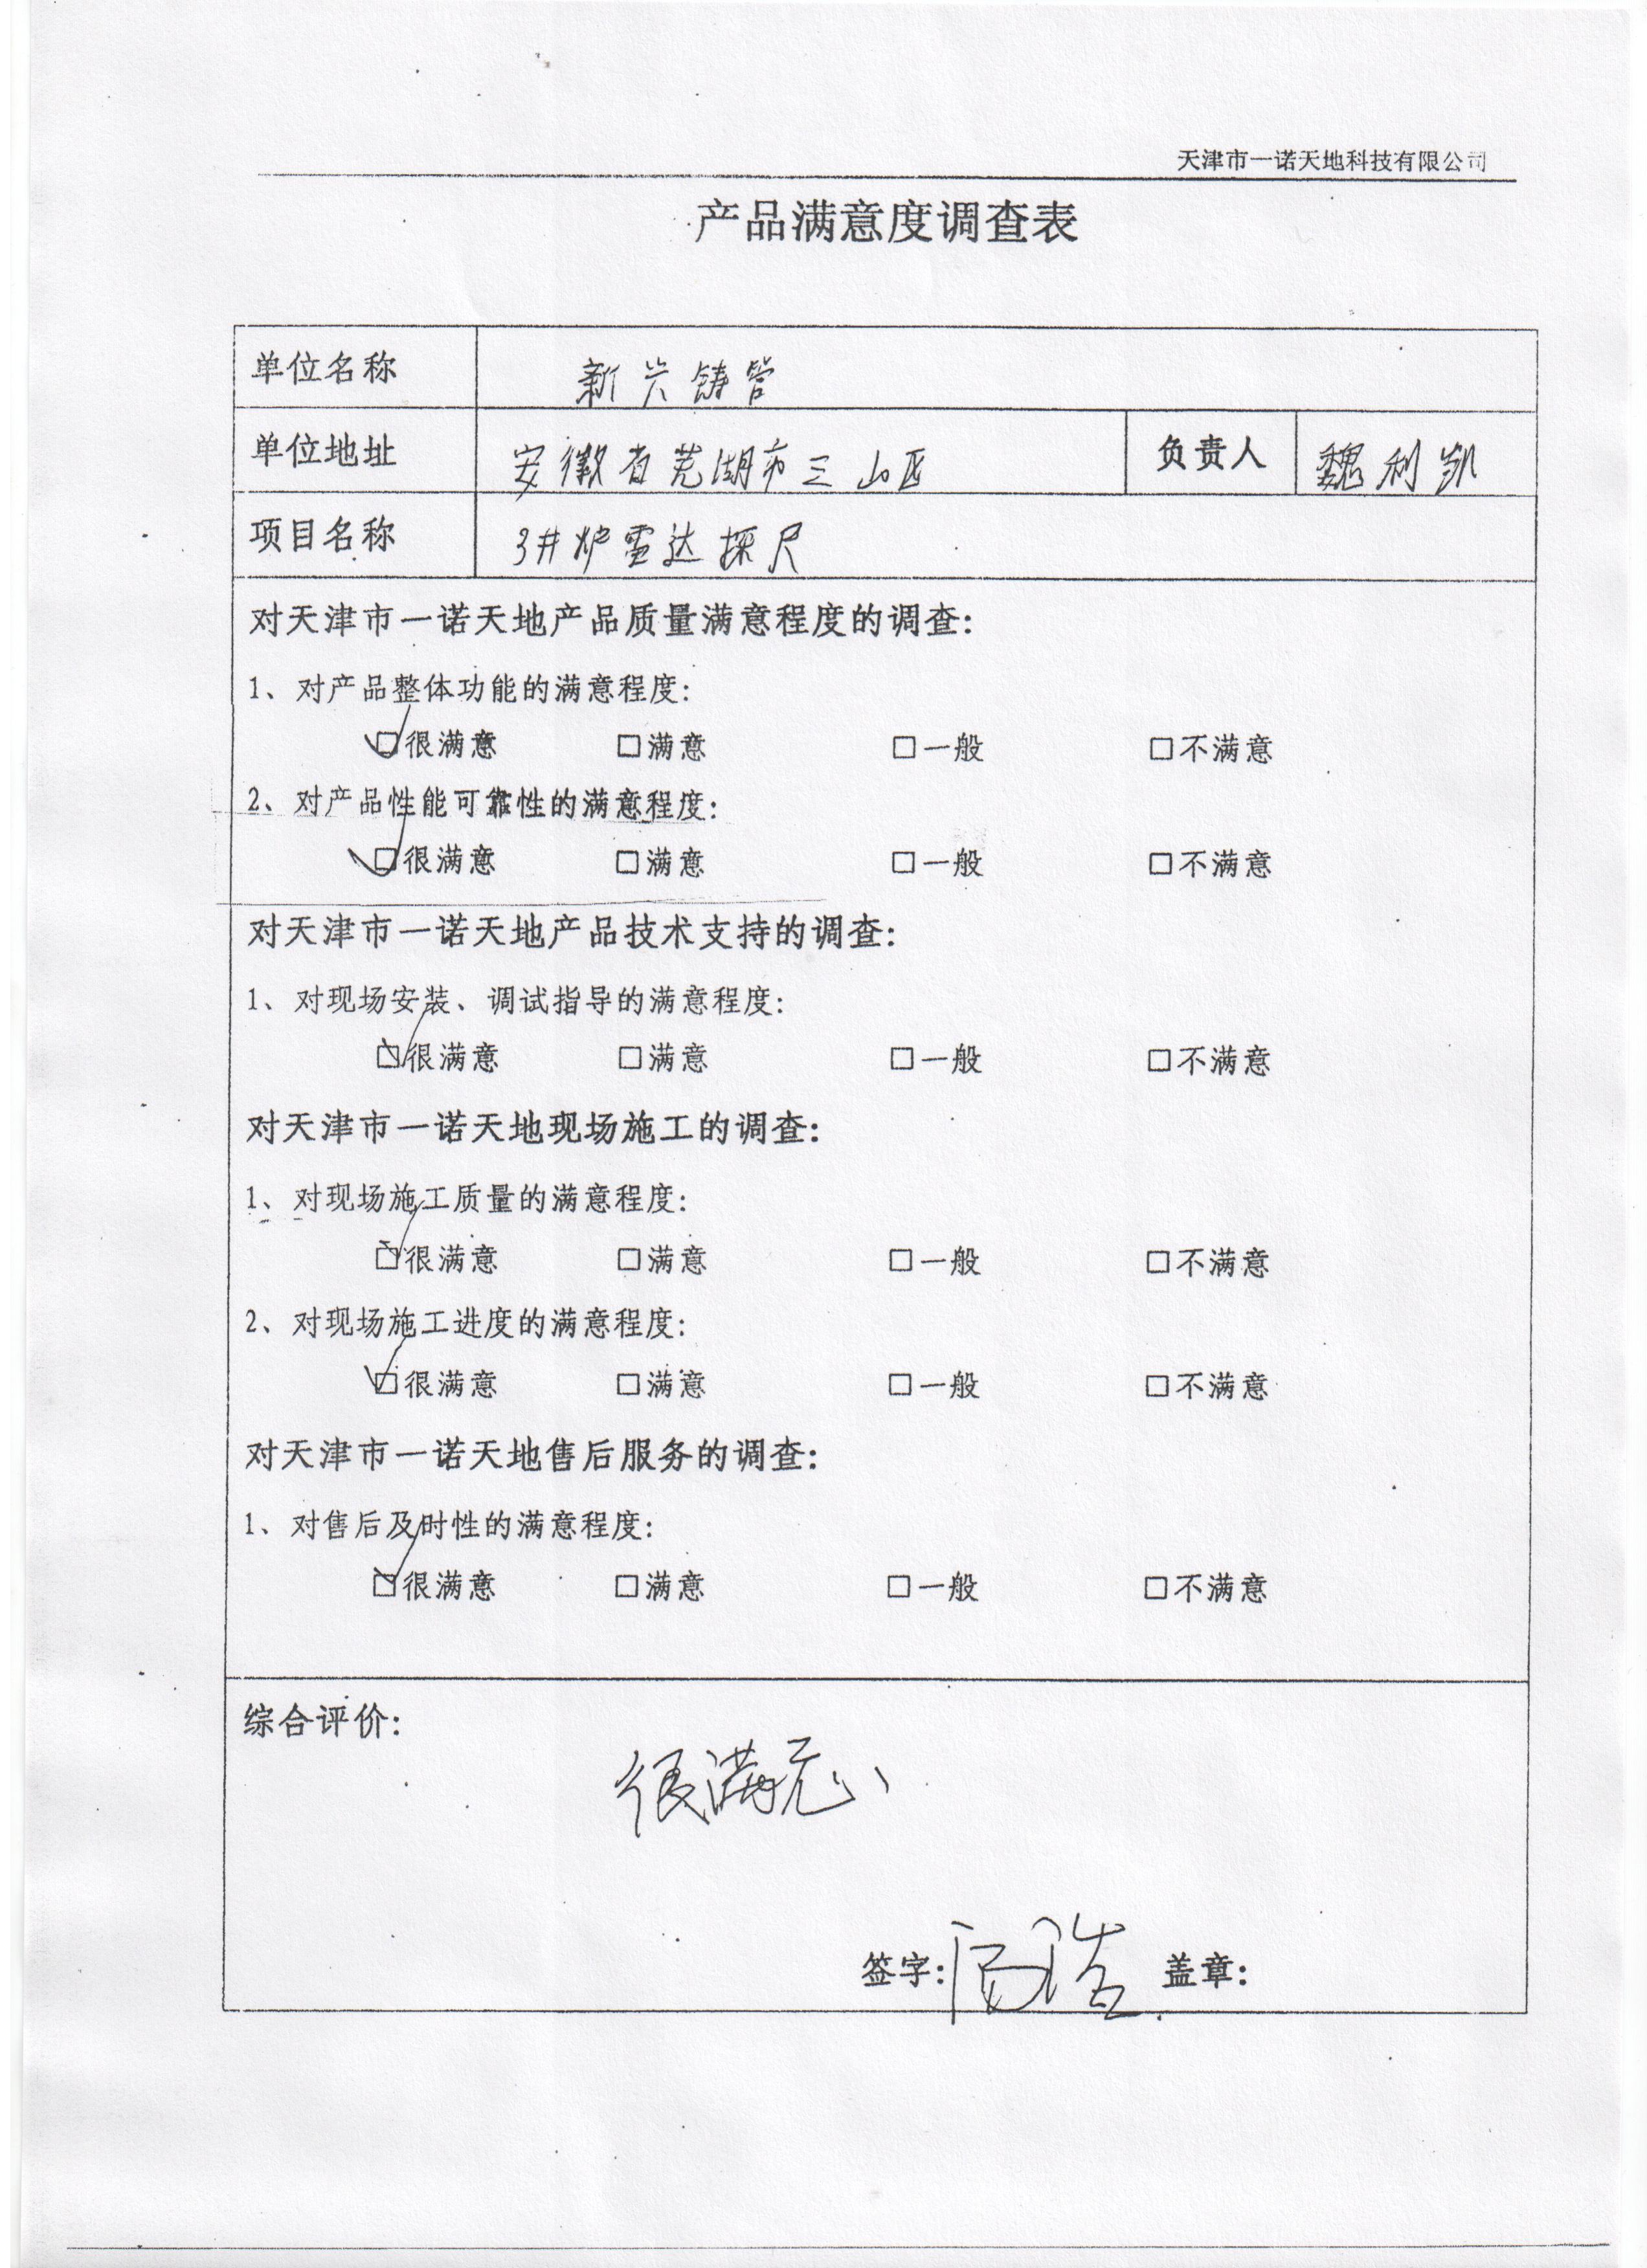 天津市一诺天地科技有限公司
产品满意度调查表
单位名称 新兴铸管
单位地址 安徽省芜湖市三山区 负责人 魏利凯
项目名称 3#炉雷达探尺
对天津市一诺天地产品质量满意程度的调查:
1、对产品整体功能的满意程度:
☑很满意 □满意 □一般 □不满意
2、对产品性能可靠性的满意程度:
☑很满意 □满意 □一般 □不满意
对天津市一诺天地产品技术支持的调查:
1、对现场安装、调试指导的满意程度:
☑很满意 □满意 □一般 □不满意
对天津市一诺天地现场施工的调查:
1、对现场施工质量的满意程度:
☑很满意 □满意 □一般 □不满意
2、对现场施工进度的满意程度:
☑很满意 □满意 □一般 □不满意
对天津市一诺天地售后服务的调查:
1、对售后及时性的满意程度:
☑很满意 □满意 □一般 □不满意
综合评价:
很满意
签字: 盖章: